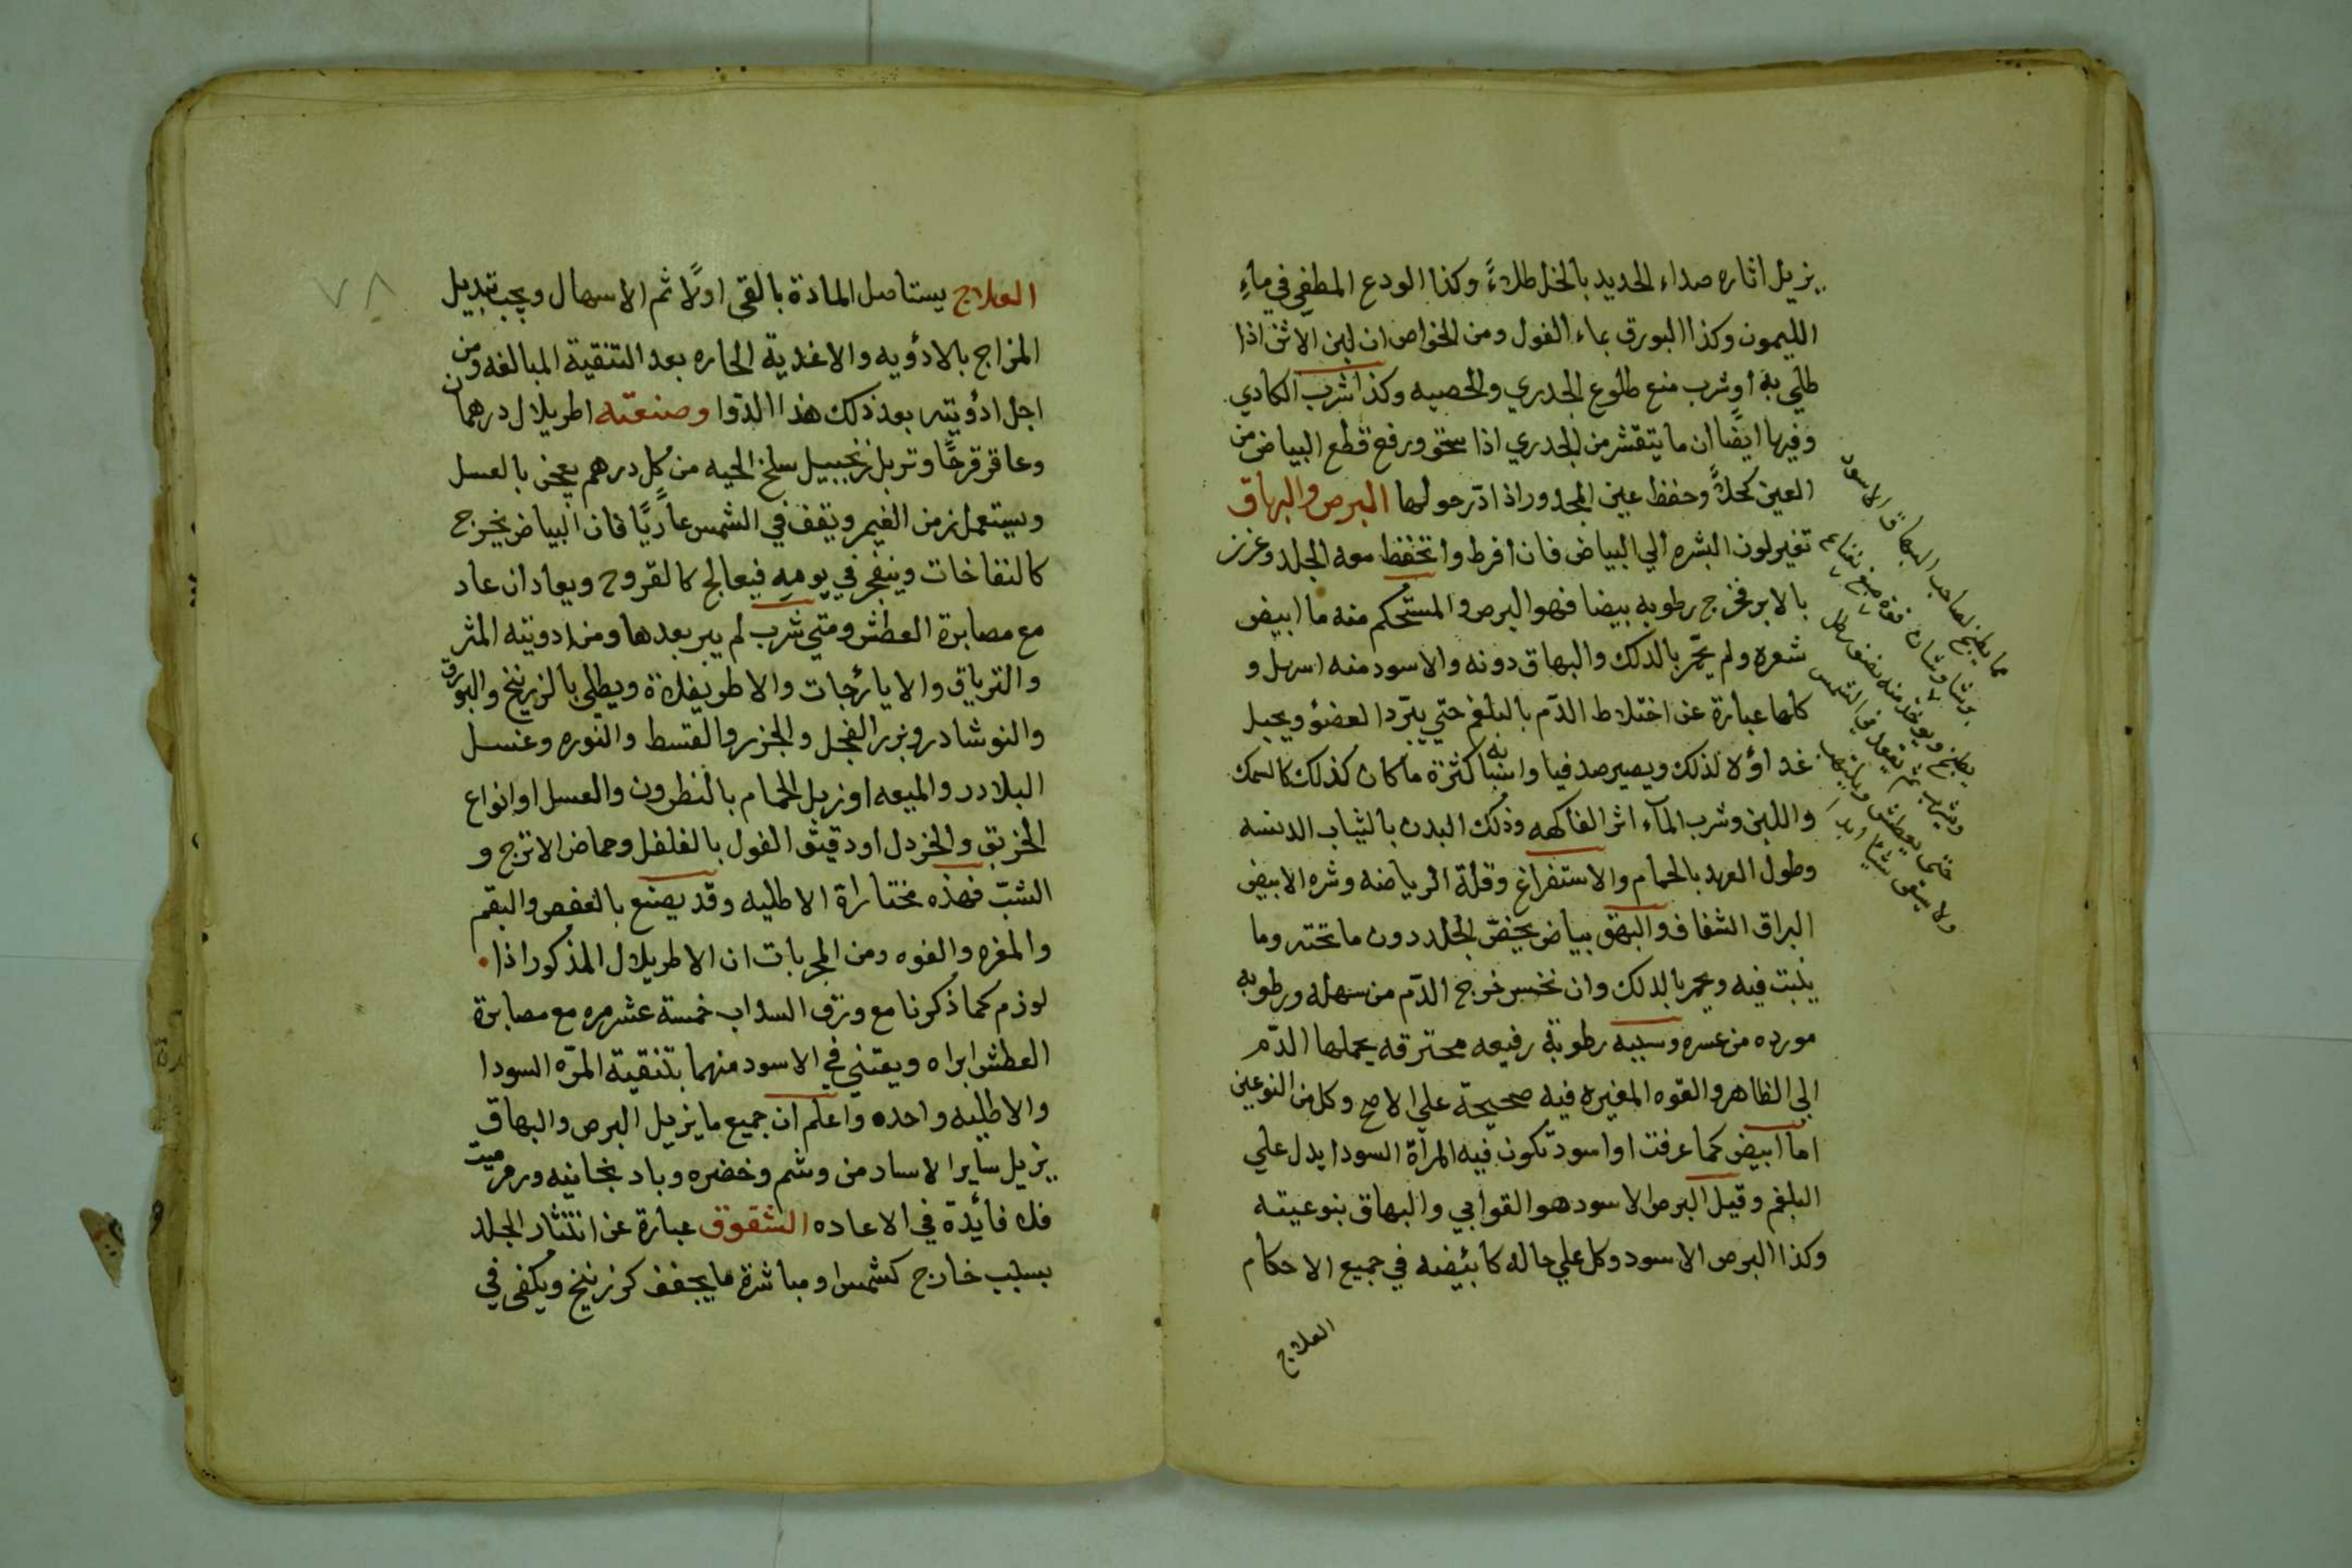 يزيل اثاره صداء الحديد بالخل طلاءً وكذا الودع المطفي في ماءِ
الليمون وكذا البورق بماء الفول ومن الخواص ان لبن الاثن اذا
طلي به اوشرب منع طلوع الجدري والحصبه وكذا شرب الكادي
وفيها ايضًا ان ما يتقشر من الجدري اذا سحق ورفع قطع البياض من
العين كحلاً وحفظ عين المجدور اذا ادّر حولها البرص والبهاق
تغير لون البشره الي البياض فان افرط وانخفظ معه الجلد وغرز
بالابر فخرج رطوبه بيضا فهو البرص والمستحكم منه ما ابيض
شعره ولم يحّمر بالدلك والبهاق دونه والاسود منه اسهل و
كلها عبارة عن اختلاط الدّم بالبلغم حتي يبّرد العضؤ ويحيل
غداؤه لذلك ويصير صدفيا واسبابه كثرة ما كان كذلك كالسمك
واللبن وشرب المآء اثر الفاكهه وذلك البدن بالثياب الدنسه
وطول العهد بالحمام والاستفراغ وقلة الرياضه وشره الابيض
البراق الشفاف والبهق بياض يخصّ الجلد دون ما تحته وما
ينبت فيه ويحمر بالدلك وان نخس خرج الدّم من سهله ورطوبه
مورده من عسره وسببه رطوبة رفيعه محترقه يحملها الدّم
الي الظاهر والقوه المغيره فيه صحيحة علي الاصح وكل من النوعين
اما ابيض كما عرفت او اسود تكون فيه المراة السودا يدل علي
البلغم وقيل البرص الاسود هو القوابي والبهاق بنوعيته
وكذا البرص الاسود وكل علي حاله كابئيضه في جميع الاحكام
العلاج
مما يطبخ لصاحب البهاق الاسود
يطبخ ويوخذ منه نصف رطل
ويشرب ثم يقعد في الشمس
حتى يعطش
ولا يسقى شيئا ابدا
٧٨
العلاج يستاصل المادة بالقي اولًا ثم الاسهال ويجب تبديل
المزاج بالادؤيه والاغدية الحاره بعد التنقية المبالغه ومن
اجل ادؤيته بعد ذلك هذا الدّوا وصنعته اطريلال درهمان
وعاقرقرحًا وتربل زنجبيل سلخ الحيه من كل درهم يعجن بالعسل
ويستعمل زمن الغيم ويقف في الشمس عاريًا فان البياض يخرج
كالنفاخات وينفجر في يومهِ فيعالج كالقروح ويعاد ان عاد
مع مصابرة العطش ومتي شرب لم يبر بعدها ومن ادويته المثر
والترياق والايارجات والاطريفلاة ويطلي بالزرنيخ والبورق
والنوشادر وبزر الفجل والجزر والقسط والنوره وعنسل
البلادر والميعه او زبل الحمام بالنطرون والعسل او انواع
الخزبق والخردل او دقيق الفول بالفلفل وحماض الاترج و
الشبّ فهذه مختاراة الاطليه وقد يصنع بالعفص والبقم
والمغره والفوه ومن المجربات ان الاطريلال المذكور اذا
لوزم كما ذكرنا مع ورق السداب خمسة عشر مره مع مصابرة
العطش ابراه ويعتني في الاسود منهما بتنقية المرّه السودا
والاطليه واحده واعلم ان جميع ما يزيل البرص والبهاق
يزيل ساير الاساد من وشم وخضره وباد نجانيه ورمرميت
فلا فائدة في الاعاده الشقوق عبارة عن انتثار الجلد
بسبب خارج كشمس او مباشرة ما يجفف كزرنيخ ويكفي في